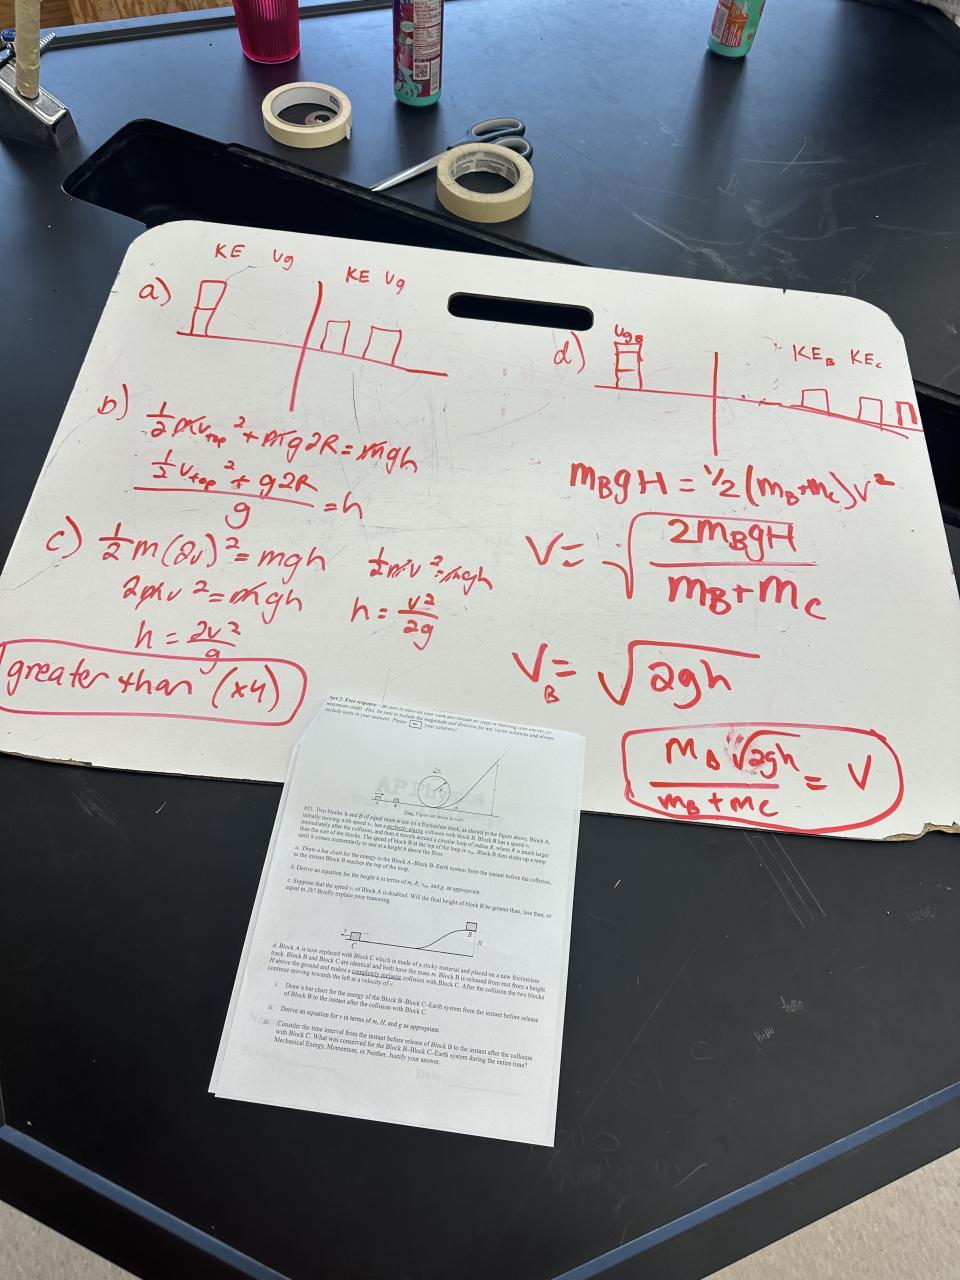 KE Ug
KE Ug
a)
b) ½mv_top² + mg2R = mgh
½v_top² + g2R
g
= h
c) ½m(2v)² = mgh
2mv² = mgh
h = 2v²
g
greater than (x4)
½mv² = mgh
h = v²
2g
d)
Ug_B
KE_B KE_C
m_BgH = 1/2(m_B+m_C)v²
V = √ 2m_BgH
m_B+m_C
V_B = √2gh
m_B √2gh
m_B + m_C
= V
Part 2: Free response - Be sure to show all your work and
maximum credit. Also, be sure to include the magnitude and direction for any vector solutions and always
include units in your answers. Please box your solutions!
#21. Two blocks A and B of equal mass m are on a frictionless track, as shown in the figure above. Block A,
initially moving with speed v₀, has a perfectly elastic collision with block B. Block B has a speed v₀
immediately after the collision, and then it travels around a circular loop of radius R, where R is much larger
than the size of the blocks. The speed of block B at the top of the loop is v_top. Block B then slides up a ramp
until it comes momentarily to rest at a height h above the floor.
a. Draw a bar chart for the energy in the Block A-Block B-Earth system from the instant before the collision,
to the instant Block B reaches the top of the loop.
b. Derive an equation for the height h in terms of m, R, v_top, and g, as appropriate.
c. Suppose that the speed v₀ of Block A is doubled. Will the final height of block B be greater than, less than, or
equal to 2h? Briefly explain your reasoning.
v
C
B
H
d. Block A is now replaced with Block C which is made of a sticky material and placed on a new frictionless
track. Block B and Block C are identical and both have the mass m. Block B is released from rest from a height
H above the ground and makes a completely inelastic collision with Block C. After the collision the two blocks
continue moving towards the left at a velocity of v.
i. Draw a bar chart for the energy of the Block B-Block C-Earth system from the instant before release
of Block B to the instant after the collision with Block C.
ii. Derive an equation for v in terms of m, H, and g as appropriate.
iii. Consider the time interval from the instant before release of Block B to the instant after the collision
with Block C. What was conserved for the Block B-Block C-Earth system during the entire time?
Mechanical Energy, Momentum, or Neither. Justify your answer.